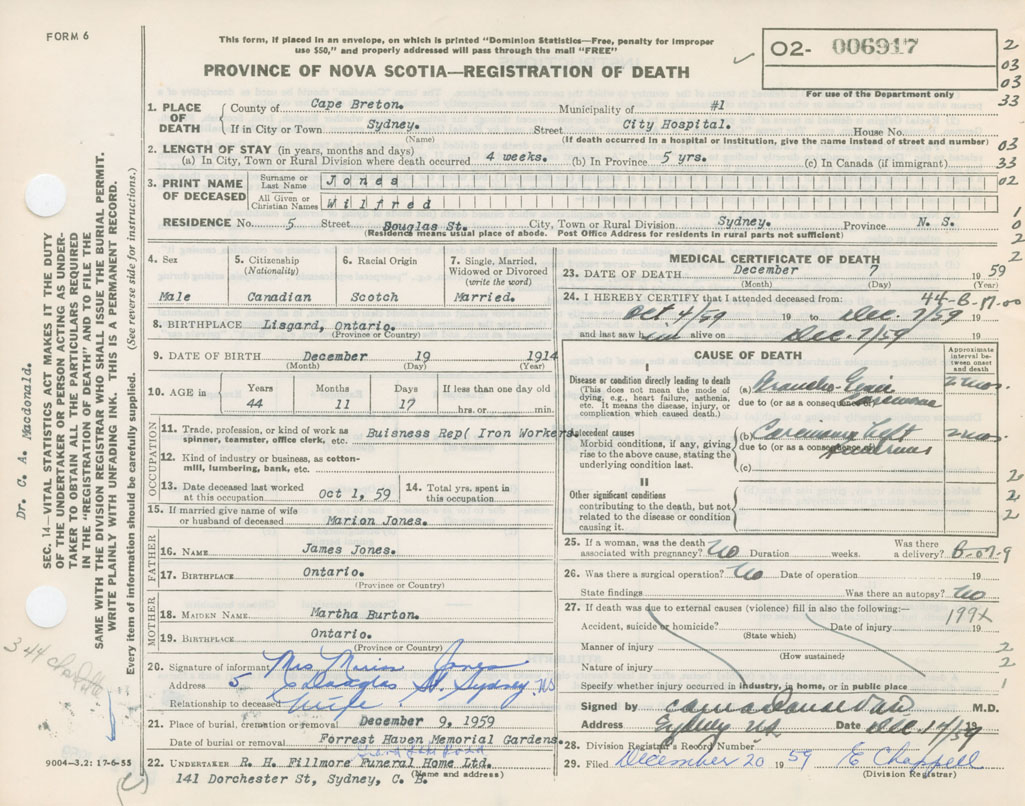 FORM 6
This form, if placed in an envelope, on which is printed "Dominion Statistics—Free, penalty for improper
use $50," and properly addressed will pass through the mail "FREE"
O2- 006917
For use of the Department only
PROVINCE OF NOVA SCOTIA—REGISTRATION OF DEATH
2
03
03
33
03
33
02
1
0
2
2
1. PLACE OF DEATH
County of Cape Breton. Municipality of #1
If in City or Town Sydney. Street City Hospital. House No.
(Name) (If death occurred in a hospital or institution, give the name instead of street and number)
2. LENGTH OF STAY (in years, months and days)
(a) In City, Town or Rural Division where death occurred 4 weeks. (b) In Province 5 yrs. (c) In Canada (if immigrant)
3. PRINT NAME OF DECEASED
Surname or Last Name Jones
All Given or Christian Names Wilfred
RESIDENCE No. 5 Street Douglas St. City, Town or Rural Division Sydney. Province N. S.
(Residence means usual place of abode. Post Office Address for residents in rural parts not sufficient)
4. Sex
Male
5. Citizenship
(Nationality)
Canadian
6. Racial Origin
Scotch
7. Single, Married, Widowed or Divorced
(write the word)
Married.
8. BIRTHPLACE Lisgard, Ontario.
(Province or Country)
9. DATE OF BIRTH December 19 1914
(Month) (Day) (Year)
10. AGE in
Years Months Days If less than one day old
44 11 17 hrs. or min.
OCCUPATION
11. Trade, profession, or kind of work as spinner, teamster, office clerk, etc. Buisness Rep( Iron Workers.
12. Kind of industry or business, as cotton-mill, lumbering, bank, etc.
13. Date deceased last worked at this occupation Oct 1, 59
14. Total yrs. spent in this occupation
15. If married give name of wife or husband of deceased Marion Jones.
FATHER
16. NAME James Jones.
17. BIRTHPLACE Ontario.
(Province or Country)
MOTHER
18. MAIDEN NAME Martha Burton.
19. BIRTHPLACE Ontario.
(Province or Country)
20. Signature of informant Mrs Marion Jones
Address 5 Douglas St. Sydney NS
Relationship to deceased Wife
21. Place of burial, cremation or removal December 9, 1959
Date of burial or removal Forrest Haven Memorial Gardens.
22. UNDERTAKER R. H. Fillmore Funeral Home Ltd.
(Name and address)
141 Dorchester St, Sydney, C. B.
MEDICAL CERTIFICATE OF DEATH
23. DATE OF DEATH December 7 1959
(Month) (Day) (Year)
24. I HEREBY CERTIFY that I attended deceased from: 44-B-17-00
Oct 4/59 19 to Dec. 7/59 19
and last saw him alive on Dec. 7/59 19
CAUSE OF DEATH
Approximate interval between onset and death
I
Disease or condition directly leading to death
(This does not mean the mode of dying, e.g., heart failure, asthenia, etc. It means the disease, injury, or complication which caused death.)
(a) Broncho-Genic 2 mos.
due to (or as a consequence of)
Antecedent causes
Morbid conditions, if any, giving rise to the above cause, stating the underlying condition last.
(b) Left 2 mos
due to (or as a consequence of)
(c)
II
Other significant conditions contributing to the death, but not related to the disease or condition causing it.
2
2
2
25. If a woman, was the death associated with pregnancy? No Duration weeks. Was there a delivery? B-07-9
26. Was there a surgical operation? No Date of operation 19
State findings Was there an autopsy? No
27. If death was due to external causes (violence) fill in also the following:—
199X
Accident, suicide or homicide? Date of injury 19
(State which)
Manner of injury 2
(How sustained)
Nature of injury 2
Specify whether injury occurred in industry, in home, or in public place 1
Signed by M.D.
Address Sydney NS Date Dec. 14/59 19
28. Division Registrar's Record Number
29. Filed December 20 1959 E Chappell
(Division Registrar)
Dr. C. A. Macdonald.
SEC. 14—VITAL STATISTICS ACT MAKES IT THE DUTY
OF THE UNDERTAKER OR PERSON ACTING AS UNDER-
TAKER TO OBTAIN ALL THE PARTICULARS REQUIRED
IN THE "REGISTRATION OF DEATH" AND TO FILE THE
SAME WITH THE DIVISION REGISTRAR WHO SHALL ISSUE THE BURIAL PERMIT.
WRITE PLAINLY WITH UNFADING INK. THIS IS A PERMANENT RECORD.
Every item of information should be carefully supplied. (See reverse side for instructions.)
344 Charlotte
9004—3.2: 17-6-55